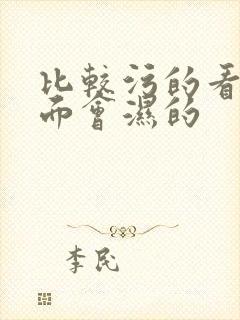 比较污的看
而會濕的
李民